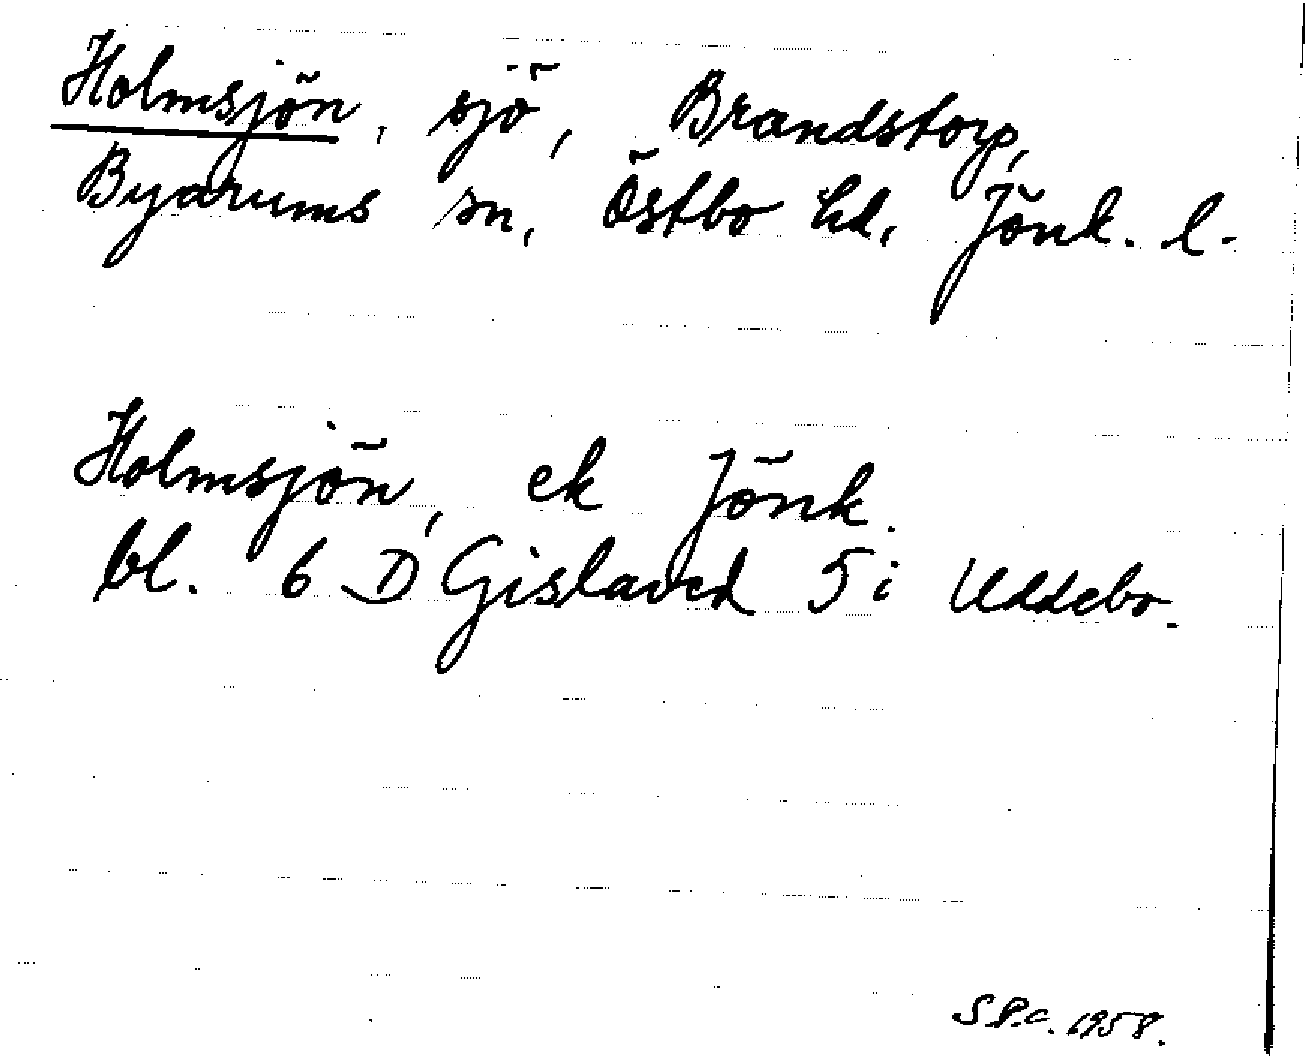 Holmsjön, sjö, Brandstorp,
Byarums sn, Östbo hd, Jönk. l.
Holmsjön, ek Jönk.
bl. 6 D Gislaved 5 i Uddebo.
S.P.C. 1958.